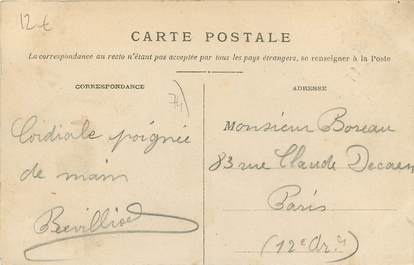 12€
CARTE POSTALE
La correspondance au recto n'étant pas acceptée par tous les pays étrangers, se renseigner à la Poste
CORRESPONDANCE
ADRESSE
Cordiale poignée
de main
Monsieur Boseau
83 rue Claude Decaen
Paris
(12e Arr)